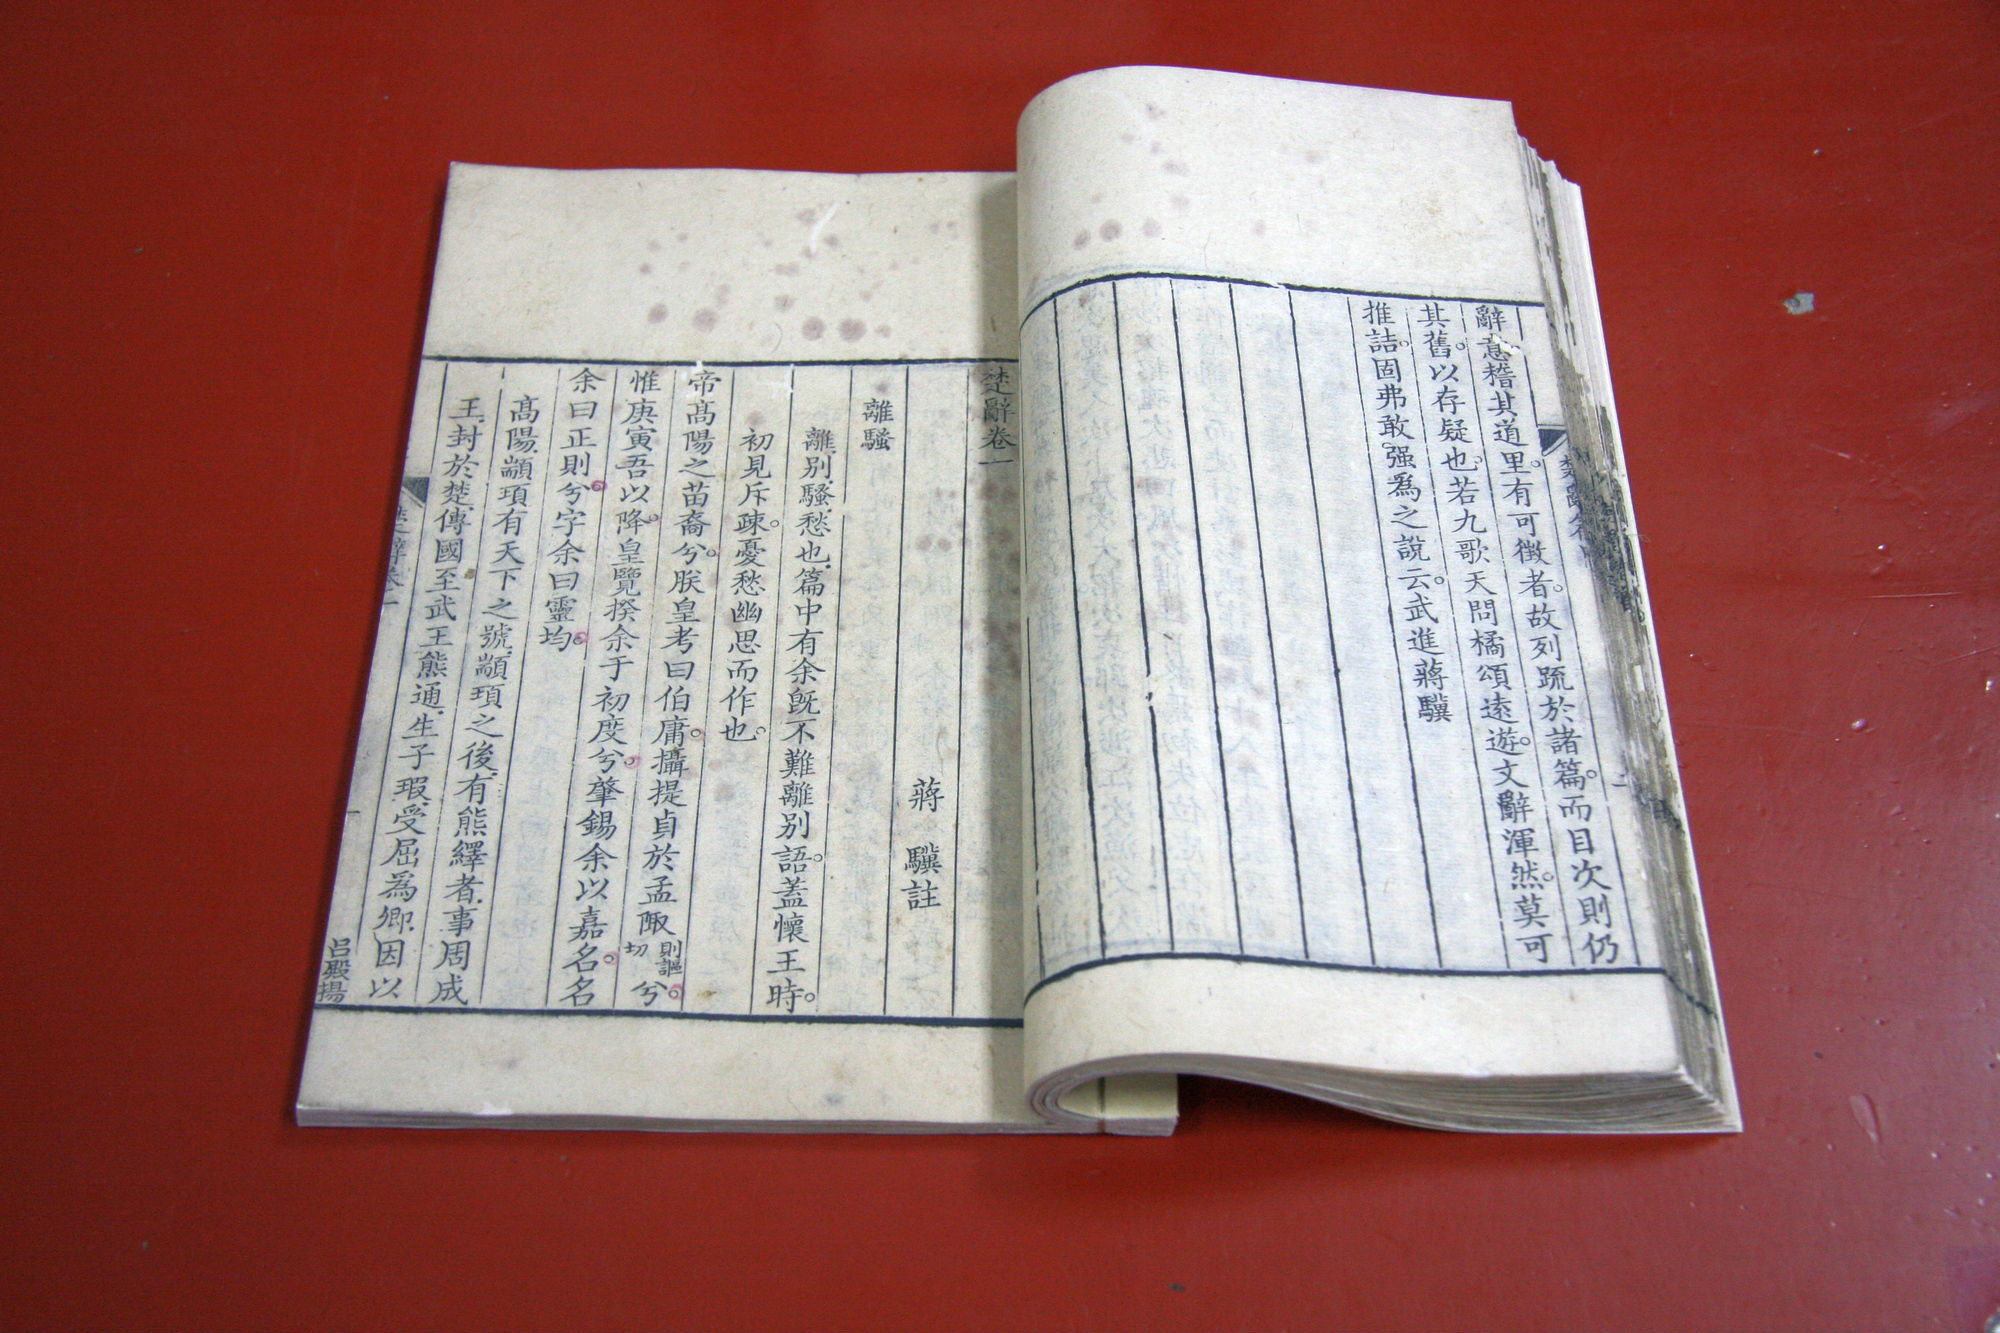 辭意稽其道里。有可徵者。故列䟽於諸篇。而目次則仍
其舊。以存疑也。若九歌天問橘頌遠遊。文辭渾然。莫可
推詰。固弗敢。强為之說云。武進蔣驥
楚辭卷一
蔣驥註
離騷
離、別、騷、愁也、篇中有余旣不難離別語。蓋懷王時。
初見斥疎。憂愁幽思而作也。
帝高陽之苗裔兮。朕皇考曰伯庸。攝提貞於孟陬則謳切兮。
惟庚寅吾以降。皇覽揆余于初度兮。肇錫余以嘉名。名
余曰正則兮。字余曰靈均。
高陽、顓頊有天下之號、顓頊之後、有熊繹者、事周成
王、封於楚、傳國至武王熊通、生子瑕、受屈為卿、因以
楚辭卷一
一
呂殿揚